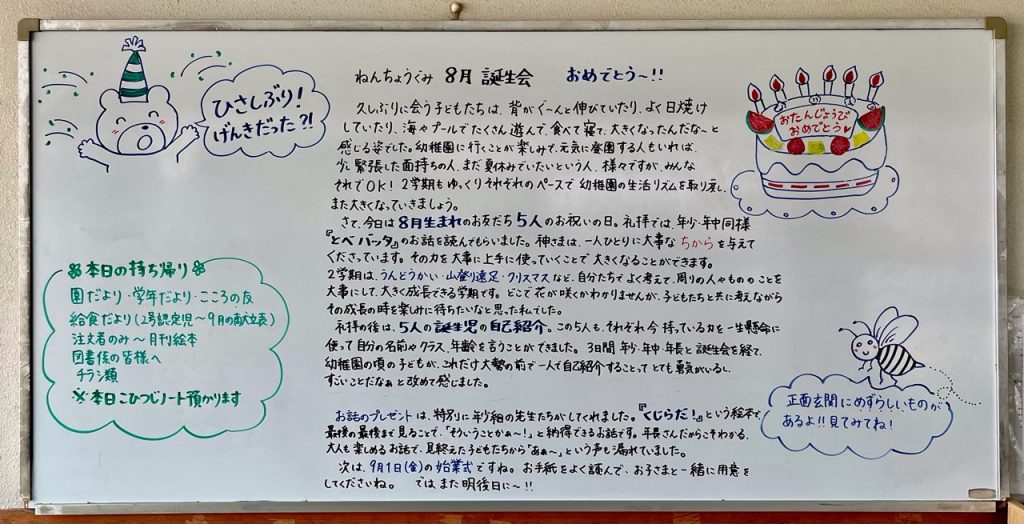 ひさしぶり!
げんきだった?!
ねんちょうぐみ 8月 誕生会 おめでとう〜!!
おたんじょうび
おめでとう
久しぶりに会う子どもたちは、背がぐ〜んと伸びていたり、よく日焼け
していたり、海やプールでたくさん遊んで、食べて寝て、大きくなったんだな〜と
感じる姿でした。幼稚園に行くことが楽しみで、元気に登園する人もいれば、
少し緊張した面持ちの人、まだ夏休みでいたいという人、様々ですが、みんな
それでOK! 2学期もゆっくりそれぞれのペースで幼稚園の生活リズムを取り戻し、
また大きくなっていきましょう。
さて、今日は8月生まれのお友だち5人のお祝いの日。礼拝では、年少・年中同様
『とべバッタ』のお話を読んでもらいました。神さまは、一人ひとりに大事なちからを与えて
くださっています。その力を大事に上手に使っていくことで大きくなることができます。
2学期は、うんどうかい・山登り遠足・クリスマスなど、自分たちでよく考えて、周りの人やもののことを
大事にして、大きく成長できる学期です。どこで花が咲くかわかりませんが、子どもたちと共に考えながら
その成長の時を楽しみに待ちたいなと思った私でした。
礼拝の後は、5人の誕生児の自己紹介。この5人も、それぞれ今持っている力を一生懸命に
使って自分の名前やクラス、年齢を言うことができました。3日間年少・年中・年長と誕生会を経て、
幼稚園の頃の子どもが、これだけ大勢の前で一人で自己紹介することってとても勇気がいるし、
すごいことだなぁと改めて感じました。
お話のプレゼントは、特別に年少組の先生たちがしてくれました。『くじらだ!』という絵本で
最後の最後まで見ることで、「そういうことかぁ〜!」と納得できるお話です。年長さんだからこそわかる、
大人も楽しめるお話で、見終えた子どもたちから「あぁ〜」という声も漏れていました。
次は、9月1日(金)の始業式ですね。お手紙をよく読んで、お子さまと一緒に用意を
してくださいね。 では、また明後日に〜!!
本日の持ち帰り
園だより・学年だより・こころの友
給食だより(2号認定児〜9月の献立表)
注文者のみ〜月刊絵本
図書係の皆様へ
チラシ類
※本日こひつじノート預かります
正面玄関にめずらしいものが
あるよ!!見てみてね!